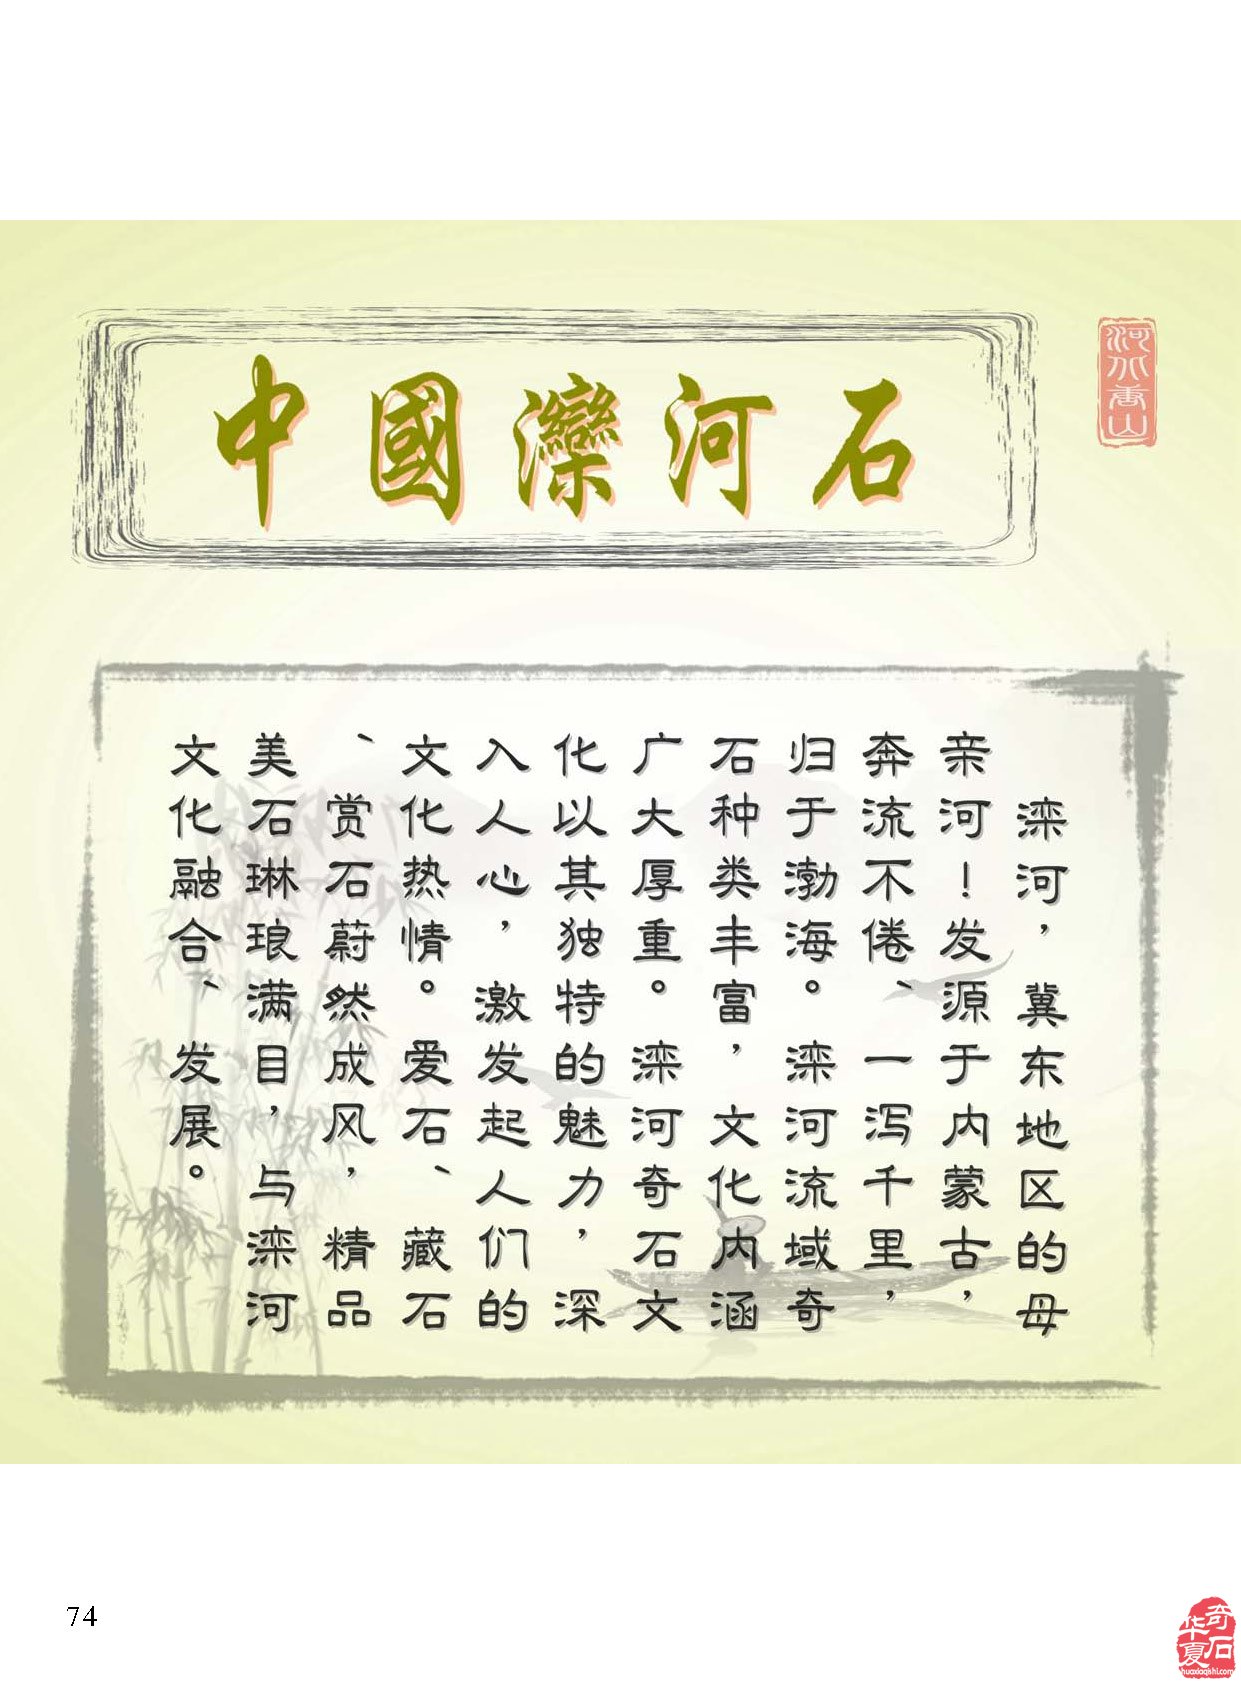 中國灤河石
河北唐山
滦河，冀东地区的母
亲河！发源于内蒙古，
奔流不倦、一泻千里，
归于渤海。滦河流域奇
石种类丰富，文化内涵
广大厚重。滦河奇石文
化以其独特的魅力，深
入人心，激发起人们的
文化热情。爱石、藏石
、赏石蔚然成风，精品
美石琳琅满目，与滦河
文化融合、发展。
74
华夏奇石
huaxiaqishi.com